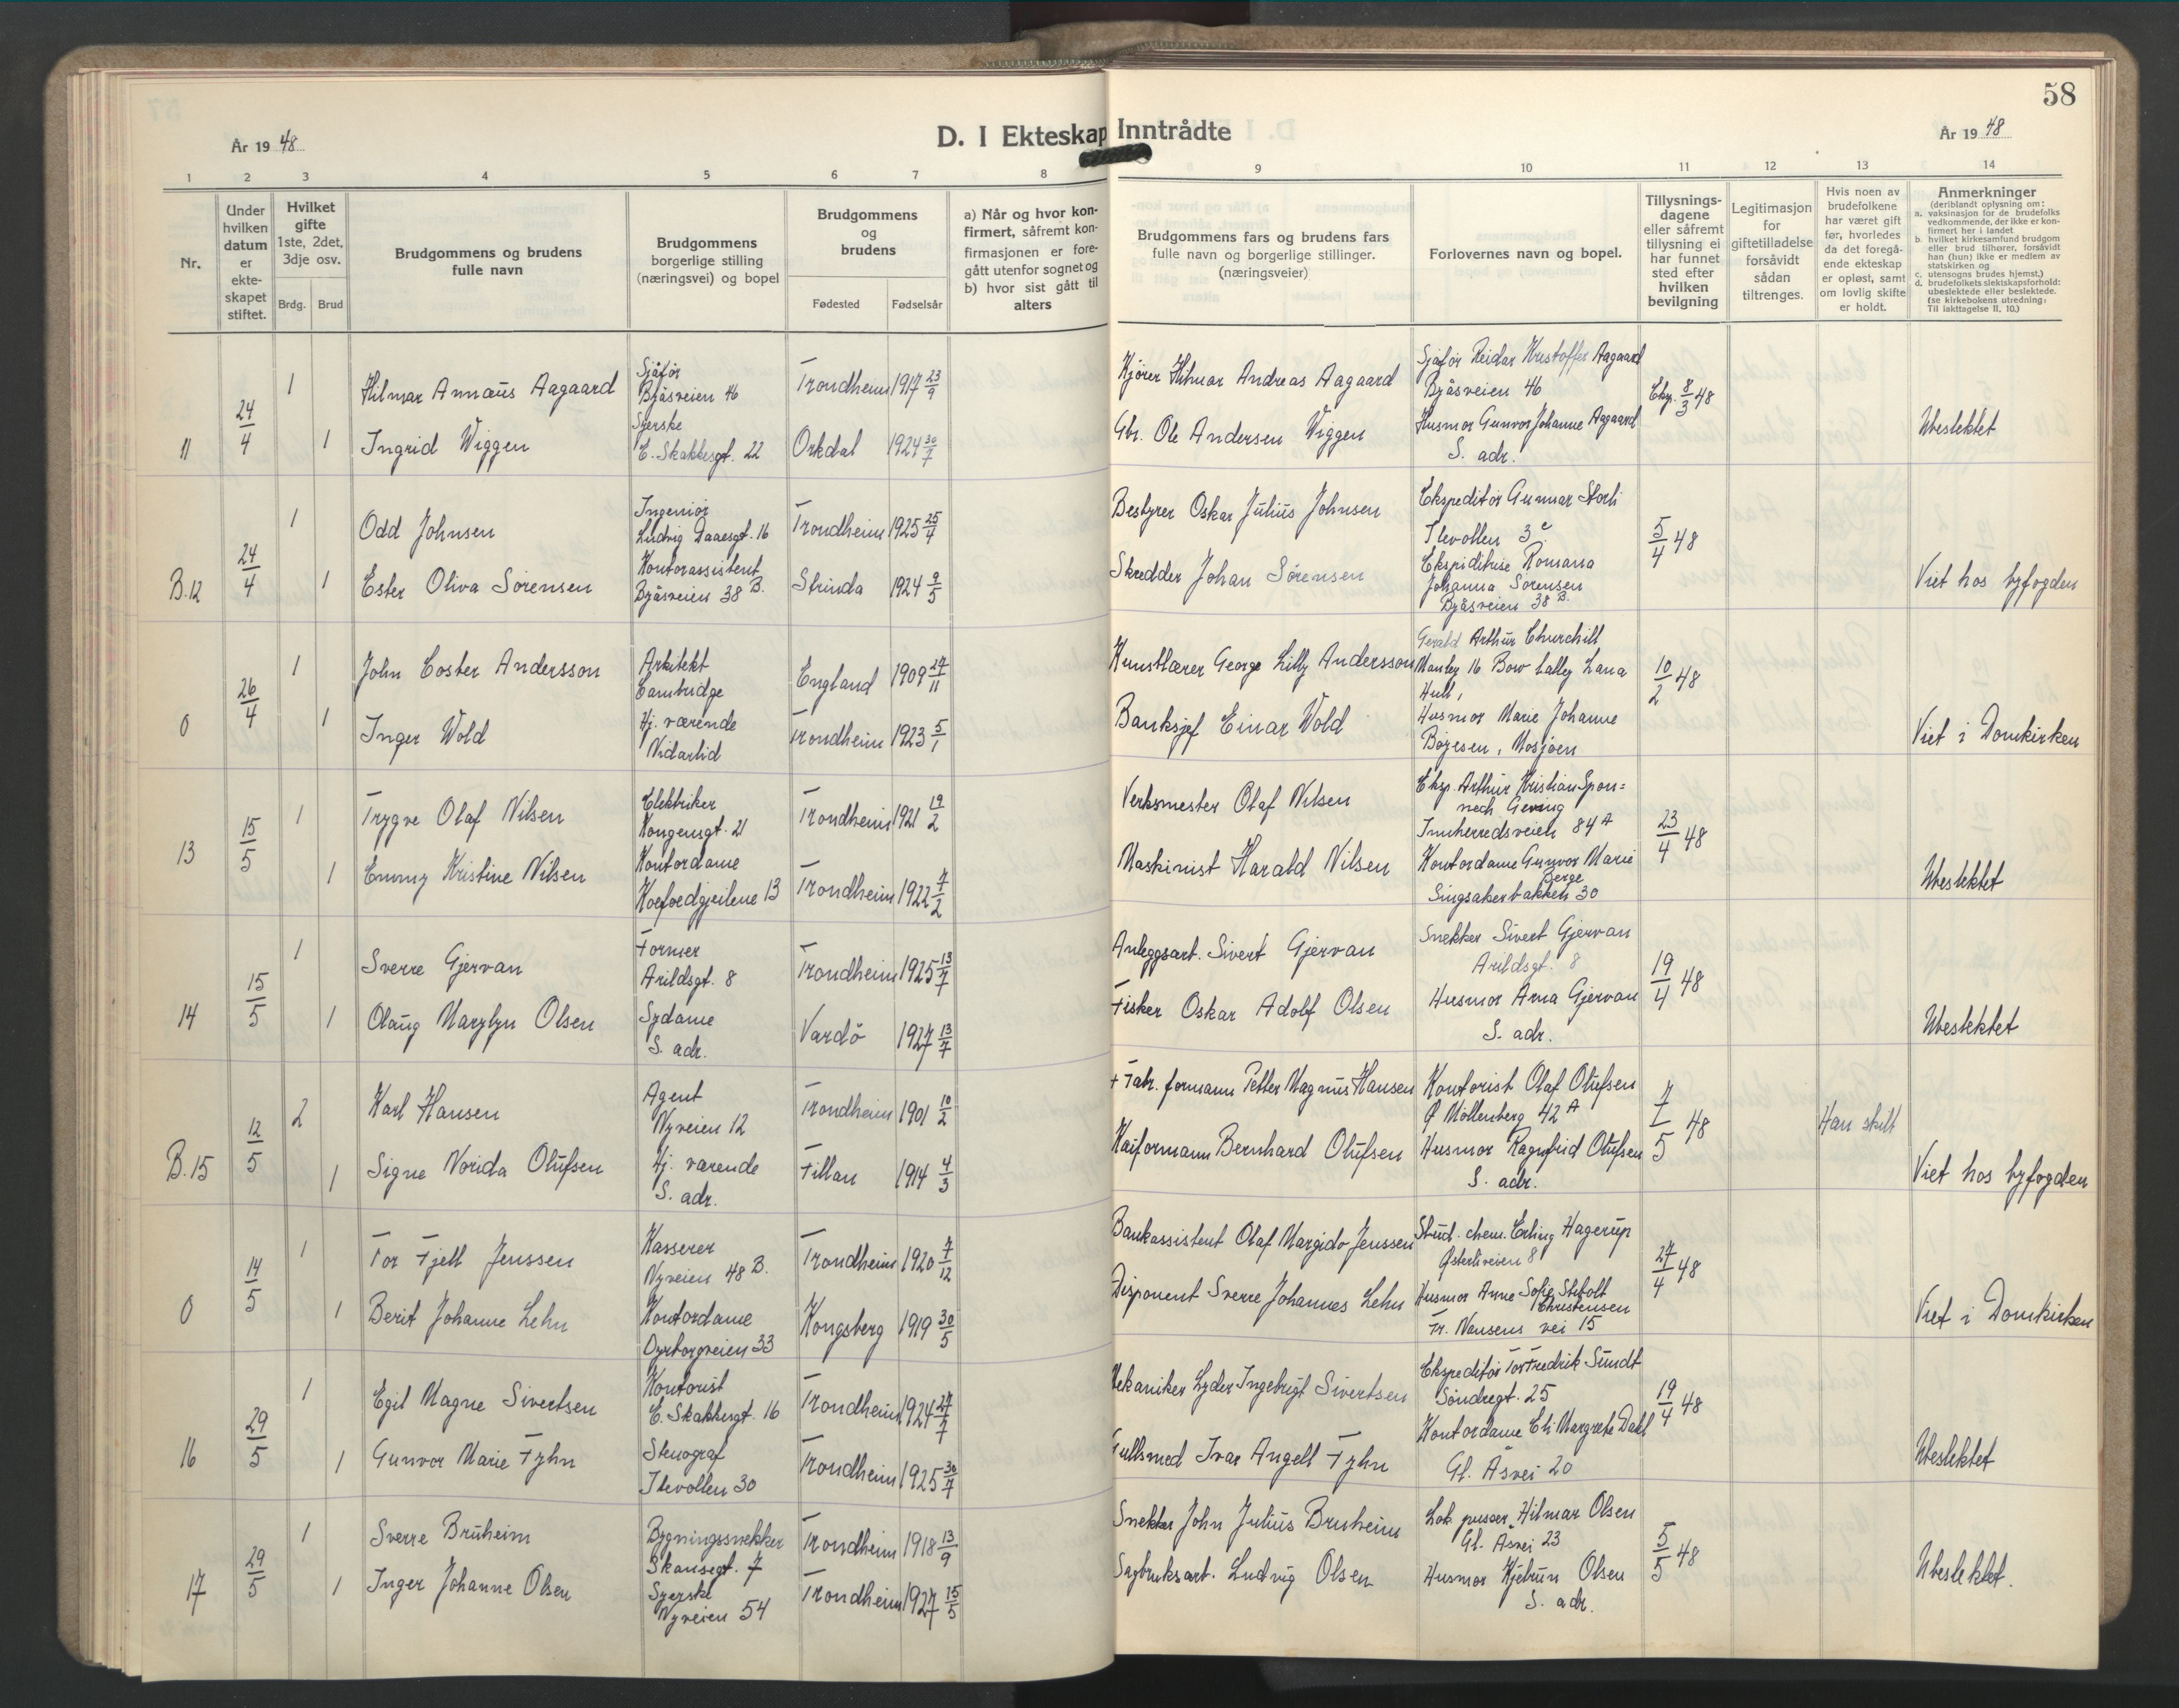 58
År 1948
D. I Ekteskap Inntrådte
År 1948
1 2 3 4 5 6 7 8 9 10 11 12 13 14
Nr.
Under hvilken datum er ekte-skapet stiftet.
Hvilket gifte 1ste, 2det, 3dje osv.
Brdg. Brud
Brudgommens og brudens fulle navn
Brudgommens borgerlige stilling (næringsvei) og bopel
Brudgommens og brudens
Fødested Fødselsår
a) Når og hvor kon-
firmert, såfremt kon-
firmasjonen er fore-
gått utenfor sognet og
b) hvor sist gått til
alters
Brudgommens fars og brudens fars
fulle navn og borgerlige stillinger.
(næringsveier)
Forlovernes navn og bopel.
Tillysnings-
dagene
eller såfremt
tillysning ei
har funnet
sted efter
hvilken
bevilgning
Legitimasjon
for
giftetilladelse
forsåvidt
sådan
tiltrenges.
Hvis noen av
brudefolkene
har været gift
før, hvorledes
da det foregå-
ende ekteskap
er opløst, samt
om lovlig skifte
er holdt.
Anmerkninger
(deriblandt oplysning om:
a. vaksinasjon for de brudefolks
vedkommende, der ikke er kon-
firmert her i landet
b. hvilket kirkesamfund brudgom
eller brud tilhører, forsåvidt
han (hun) ikke er medlem av
statskirken og
c. utensogns brudes hjemst,)
d. brudefolkets slektskapsforhold:
ubeslektede eller beslektede.
(se kirkebokens utredning:
Til iakttagelse II, 10.)
11 24/4 1 Hilmar Annæus Aagaard Sjåfør Byåsveien 46 Trondheim 1917 23/9 Kjører Hilmar Andreas Aagaard Sjåfør Reidar Kristoffer Aagaard Byåsveien 46 8/3 48
1 Ingrid Wiggen Syerske E. Skakkesgt. 22 Orkdal 1924 30/7 Gbr. Ole Andersen Wiggen Husmor Gunvor Johanne Aagaard S. adr. Ubeslektet
B.12 24/4 1 Odd Johnsen Ingeniør Ludvig Daaesgt. 16 Trondheim 1925 25/4 Bestyrer Oskar Julius Johnsen Ekspeditør Gunnar Storli Ilevollen 3 c. 5/4 48
1 Ester Oliva Sørensen Kontorassistent Byåsveien 38 B. Strinda 1924 9/5 Skredder Johan Sørensen Ekspiditrise Romana Johanna Sørensen Byåsveien 38 B. Viet hos byfogden
0 26/4 1 John Coster Andersson Arkitekt Cambridge England 1909 27/11 Kunstlærer George Lilly Andersson Gerald Arthur Churchill Manley 16 Bow Lalley Lana Hull, 10/2 48
1 Inger Wold Hj. værende Nidarlid Trondheim 1923 5/1 Banksjef Einar Wold Husmor Marie Johanne Børjesen, Mosjøen Viet i Domkirken
13 15/5 1 Trygve Olaf Nilsen Elektriker Kongensgt. 21 Trondheim 1921 19/2 Verksmester Olaf Nilsen Eksp. Arthur Kristian Spon= nech Gering Innherredsveien 84 A 23/4 48
1 Emmy Kristine Nilsen Kontordame Koefoedgjeilene 13 Trondheim 1922 7/2 Maskinist Harald Nilsen Kontordame Gunvor Marie Berge Singsakerbakken 30 Ubeslektet
14 15/5 1 Sverre Gjervan Former Arildsgt. 8 Trondheim 1925 13/7 Anleggsarb. Sivert Gjervan Snekker Sivert Gjervan Arildsgt. 8 19/4 48
1 Olaug Marylyn Olsen Sydame S. adr. Vardö 1927 13/7 Fisker Oskar Adolf Olsen Husmor Arna Gjervan S. adr. Ubeslektet
B.15 12/5 2 Karl Hansen Agent Nyveien 12 Trondheim 1901 10/2 + Fabr. formann Petter Magnus Hansen Kontorist Olaf Olufsen Ø Møllenberg 42 A 7/5 48 Han skilt
1 Signe Norida Olufsen Hj. værende S. adr. Fillan 1914 4/3 Kaiformann Bernhard Olufsen Husmor Ragnfrid Olufsen S. adr. Viet hos byfogden
0 14/5 1 Tor Fjell Jenssen Kasserer Nyveien 48 B. Trondheim 1920 7/12 Bankassistent Olaf Margido Jenssen Stud. chem. Erling Hagerup Østerliveien 8 27/4 48
1 Berit Johanne Lehn Kontordame Dyrborgveien 33 Kongsberg 1919 30/5 Disponent Sverre Johannes Lehn Husmor Anne Sofie Stibolt Christensen Fr. Nansens vei 15 Viet i Domkirken
16 29/5 1 Egil Magne Sivertsen Kontorist E. Skakkesgt. 16 Trondheim 1924 27/7 Mekaniker Lyder Ingebrigt Sivertsen Ekspeditør Tor Fredrik Sundt Søndregt. 25 19/4 48
1 Gunvor Marie Fyhn Stenograf Ilevollen 30 Trondheim 1925 30/7 Gullsmed Ivar Angell Fyhn Kontordame Eli Margrete Dahl Gl. Åsvei 20 Ubeslektet
17 29/5 1 Sverre Bruheim Bygningssnekker Skansegt. 7 Trondheim 1918 13/9 Snekker John Julius Bruheim Lok pusser Hilmar Olsen Gl. Åsvei 23 5/5 48
1 Inger Johanne Olsen Syerske Nyveien 54 Trondheim 1927 15/5 Sagbruksarb. Ludvig Olsen Husmor Kjelrun Olsen S. adr. Ubeslektet.